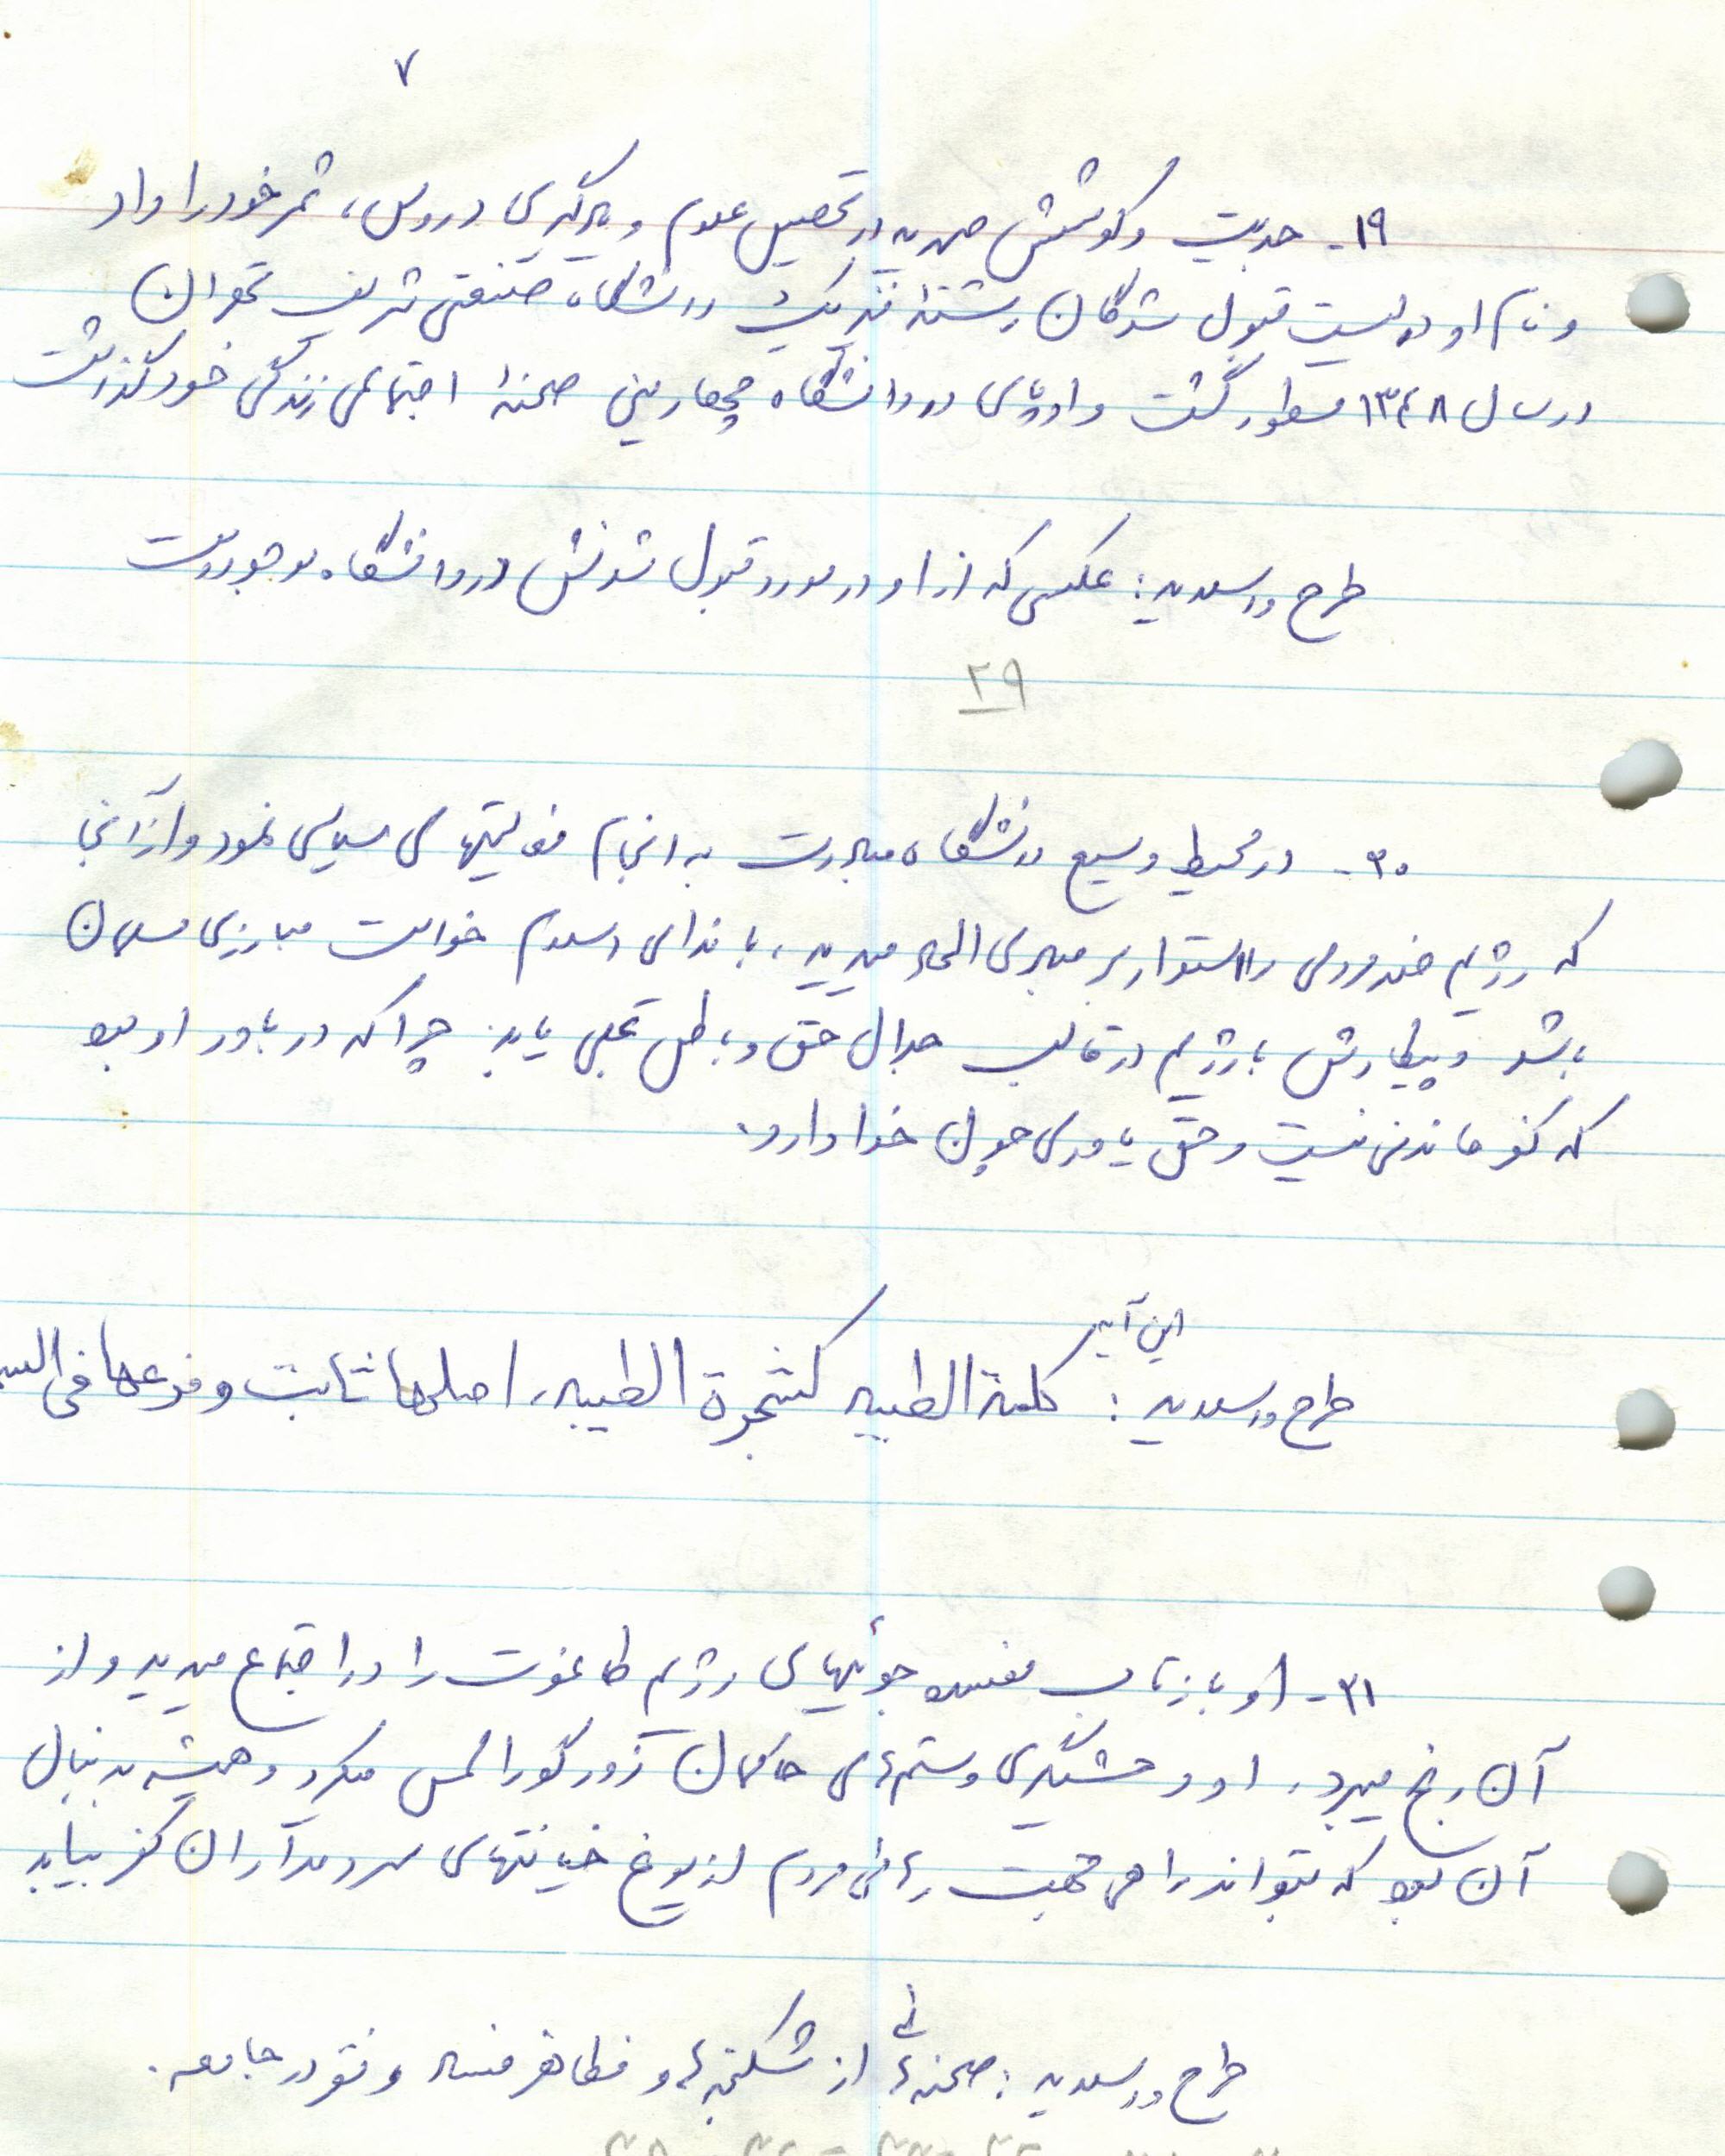 ۷
۱۹- جدیت و کوشش مهدیه در تحصیل علوم و پیگیری دروس، ثمر خود را داد
و نام او در لیست قبول شدگان رشتهٔ فیزیک دانشگاه صنعتی شریف تهران
در سال ۱۳۴۸ مسطور گشت و او پای در دانشگاه چهارمین صحنهٔ اجتماعی زندگی خود گذاشت
طرح و اسلاید: عکسی که از او در مورد قبول شدنش در دانشگاه موجود است
۲۹
۳۰- در محیط وسیع دانشگاه مبادرت به انجام فعالیتهای سیاسی نمود و از آنجا
که رژیم ضد مردمی را استوار بر مبادی الحاد میدید، با ندای اسلام خواست مبارزی مسلمان
باشد و پیکارش با رژیم در قالب جدال حق و باطل تجلی یابد. چرا که در باور او بود
که کفر ماندنی نیست و حق یاوری چون خدا دارد.
این آیه
طرح و اسلاید: کلمة الطیبه کشجرة الطیبه، اصلها ثابت و فرعها فی السم
۳۱- او بازتاب مفسده جوئیهای رژیم طاغوت را در اجتماع میدید و از
آن رنج میبرد. او وحشیگری و ستمهای حاکمان زورگو را لمس میکرد و همیشه بدنبال
آن بود که بتواند راهی جهت رهائی مردم از یوغ خیانتهای سردمداران کفر بیابد
طرح و اسلاید: صحنه‌هائی از شکنجه‌ها و مظاهر فساد و فقر در جامعه.